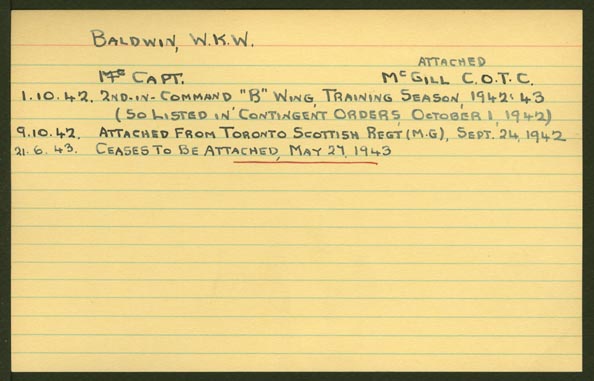 BALDWIN, W.K.W.
ATTACHED
CAPT. McGILL C.O.T.C.
1.10.42. 2ND-IN-COMMAND "B" WING, TRAINING SEASON, 1942-43
(SO LISTED IN CONTINGENT ORDERS, OCTOBER 1, 1942)
9.10.42. ATTACHED FROM TORONTO SCOTTISH REGT (M.G), SEPT. 24, 1942
21.6.43. CEASES TO BE ATTACHED, MAY 27, 1943